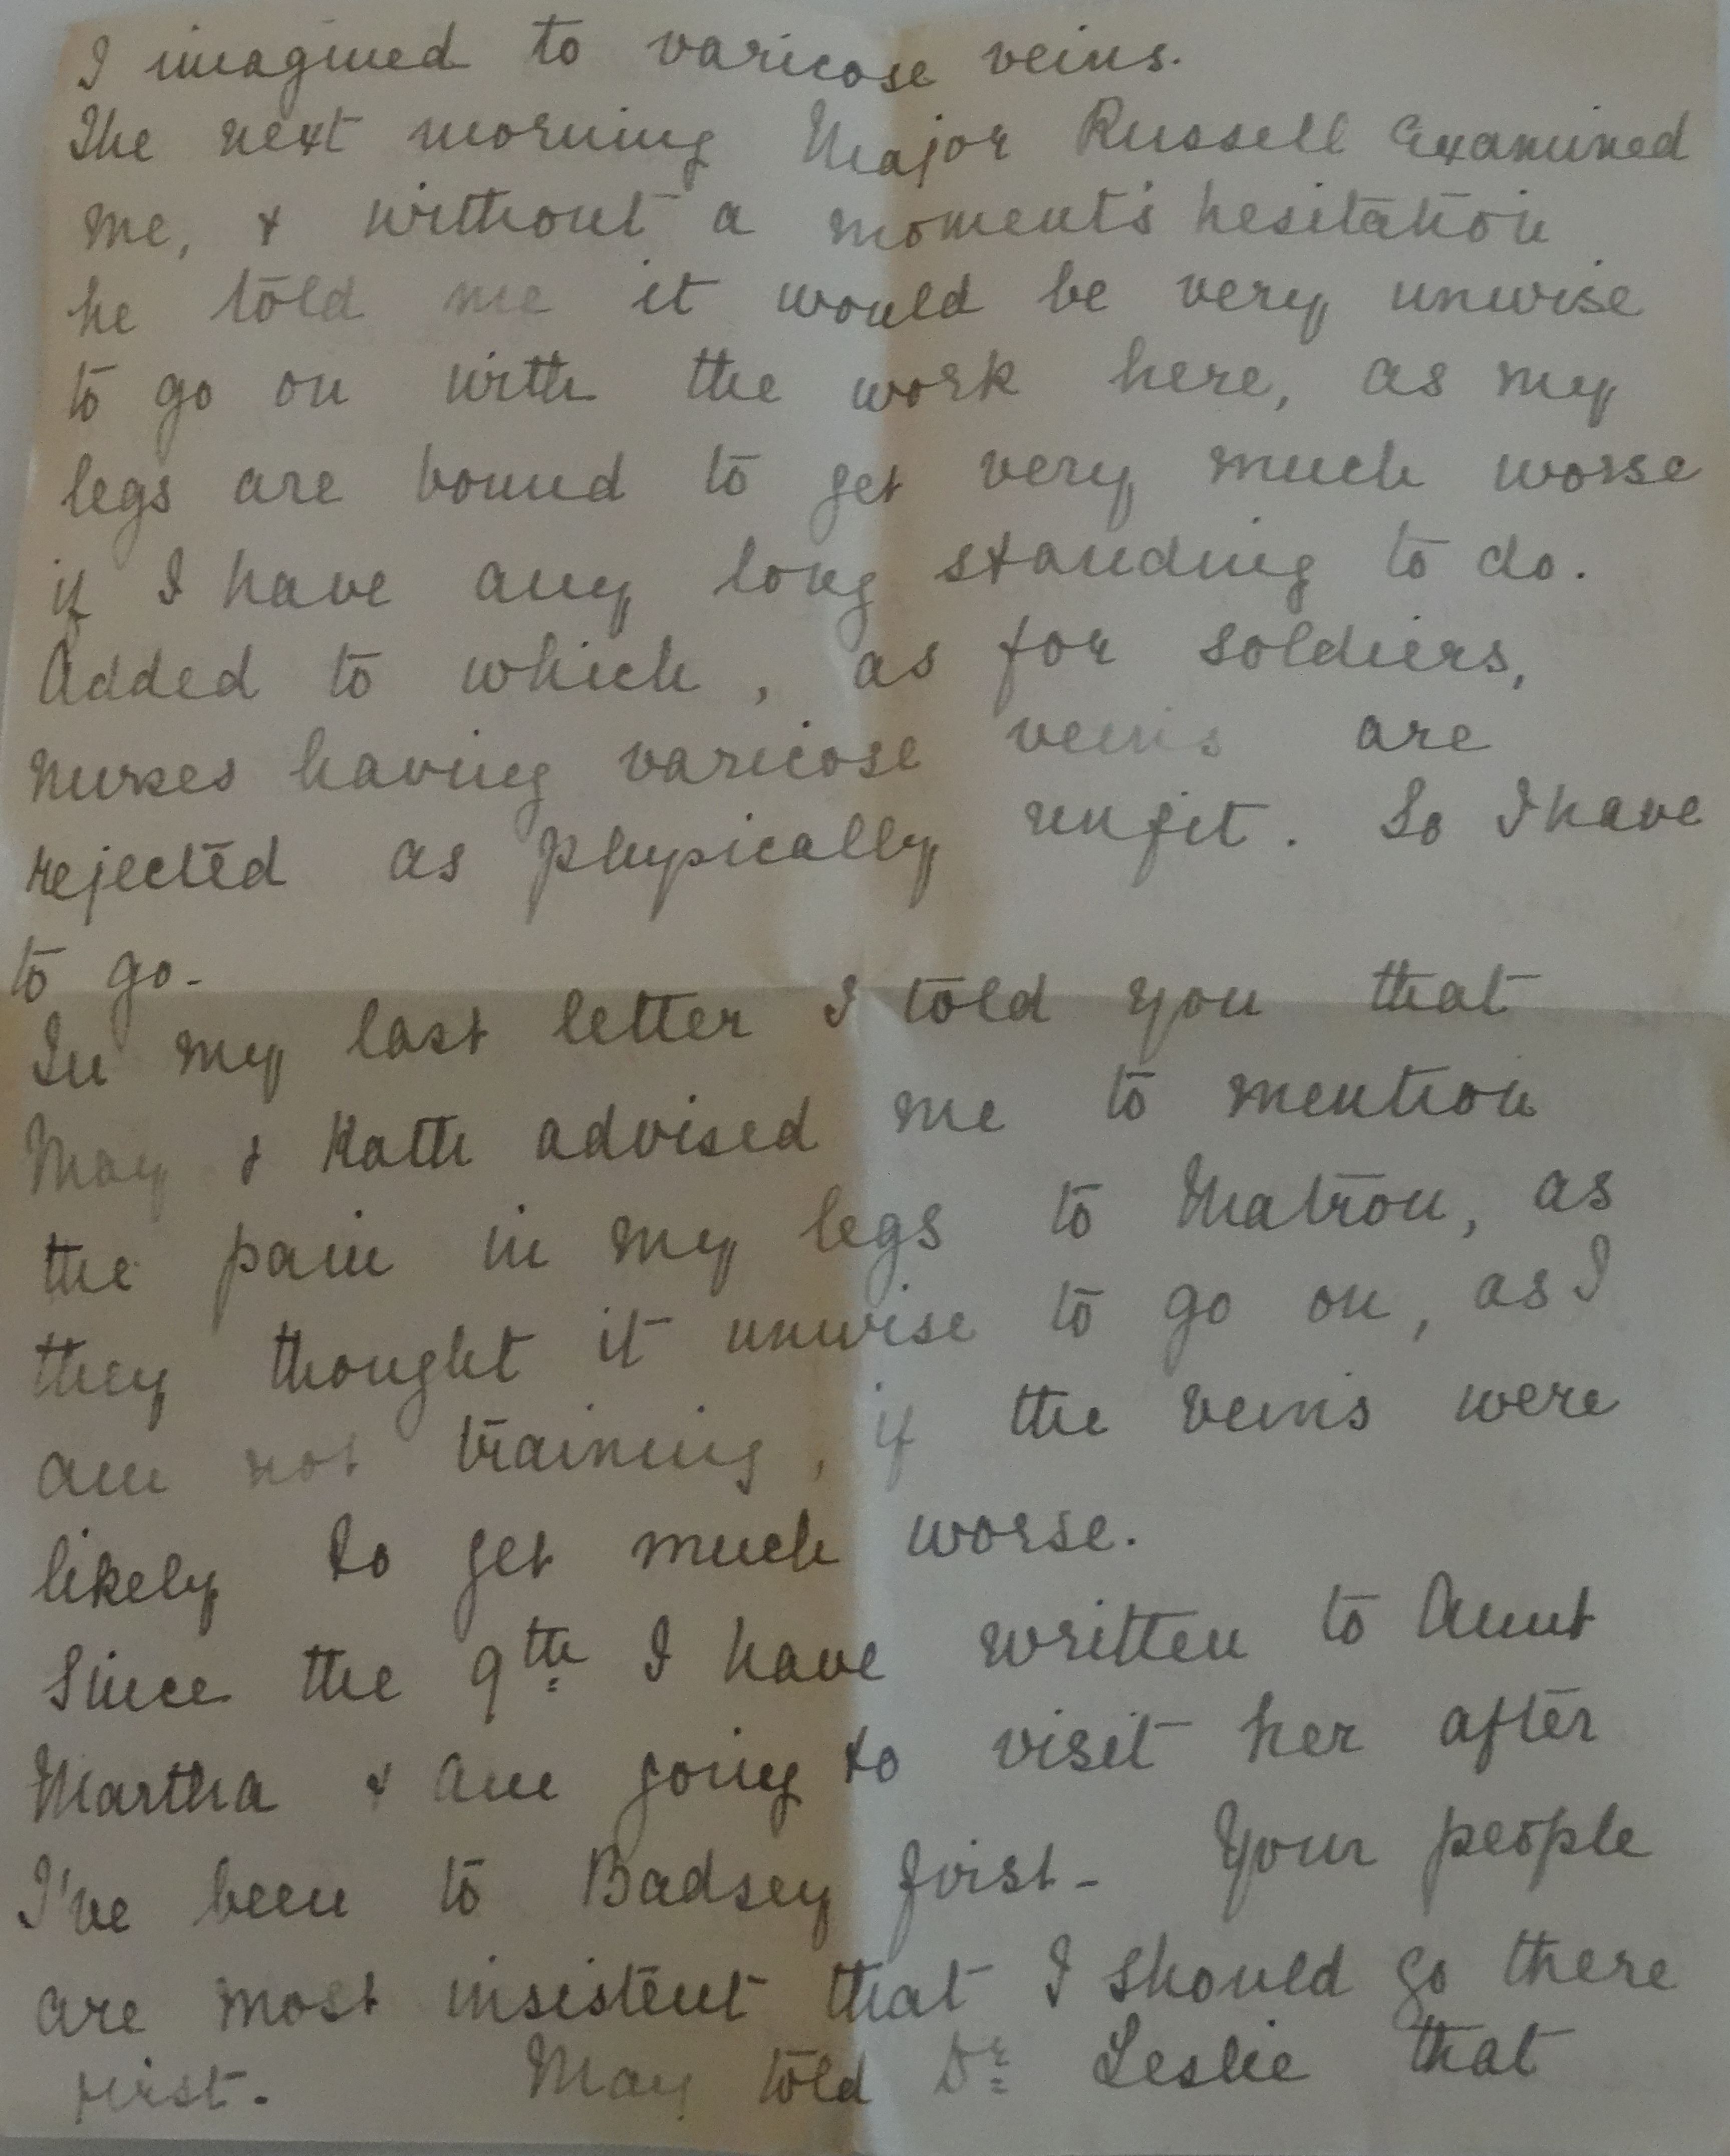 I imagined to varicose veins.
The next morning Major Russell Examined
me, & without a moment's hesitation
he told me it would be very unwise
to go on with the work here, as my
legs are bound to get very much worse
if I have any long standing to do.
Added to which, as for soldiers,
nurses having varicose veins are
rejected as physically unfit. So I have
to go-
In my last letter I told you that
May & Kath advised me to mention
the pain in my legs to Matron, as
they thought it unwise to go on, as I
am not training, if the veins were
likely to get much worse.
Since the 9th I have written to Aunt
Martha & am going to visit her after
I've been to Badsey first- Your people
are most insistent that I should go there
first- May told Dr Leslie that